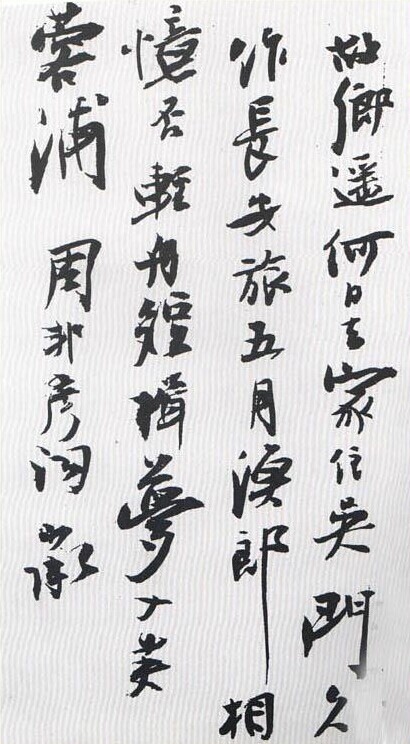 故鄉遙何日去家住吳門久
作長安旅五月漁郎相
憶否輕舟短楫夢入芙
蓉浦 周邦彥词